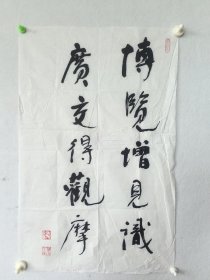 博覽增見識
廣交得觀摩